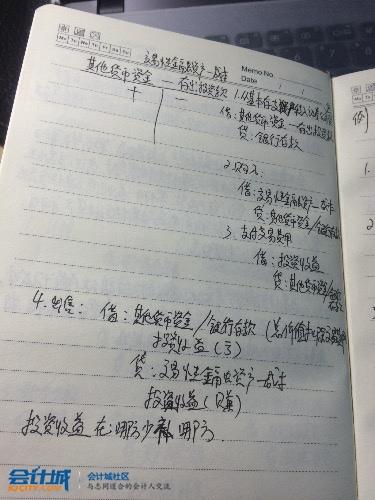 Mo Tu We Th Fr Sa Su
Memo No.
Date / /
交易性金融资产—成本
其他货币资金—存出投资款
+ —
借:其他货币资金—存出投资款
贷:银行存款
2.购入
借:交易性金融资产—成本
贷:其他货币资金/银行存款
3.支付交易费用
借:投资收益
贷:其他货币资金/银行存款
4.出售:借:其他货币资金/银行存款
投资收益(亏)
贷:交易性金融资产—成本
投资收益(赚)
投资收益在哪方少 哪方
例
1.
2
会计城
KJCITY.COM
会计城社区
与志同道合的会计人交流